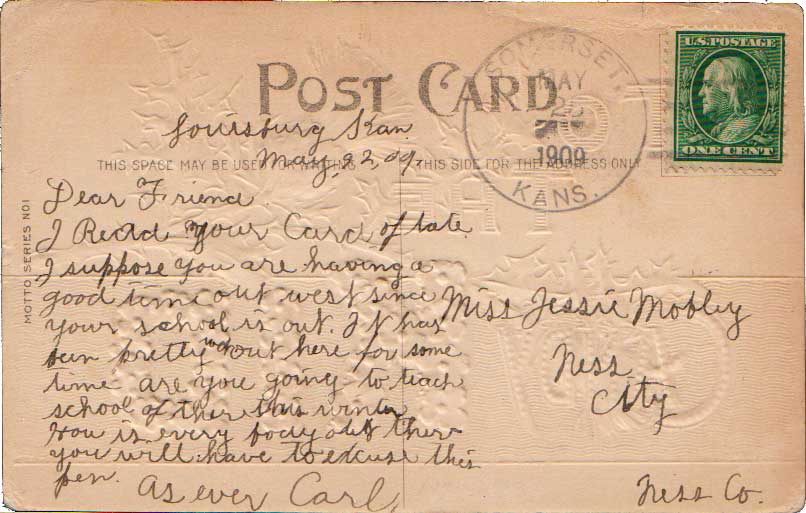 POST CARD
THIS SPACE MAY BE USED FOR WRITING
THIS SIDE FOR THE ADDRESS ONLY
MOTTO SERIES NO1
U.S. POSTAGE
ONE CENT
SOMERSET.
MAY
1909
KANS.
Louisburg Kan
May, 22, 09.
Dear Friend.
I Recd your Card of late
I suppose you are having a
good time out west since
your school is out. It has
been pretty out here for some
time are you going to teach
school of ther this winter
How is every body out ther
you will have to excuse this
pen.
As ever Carl,
Miss Jessie Mobley
Ness
City
Ness Co.